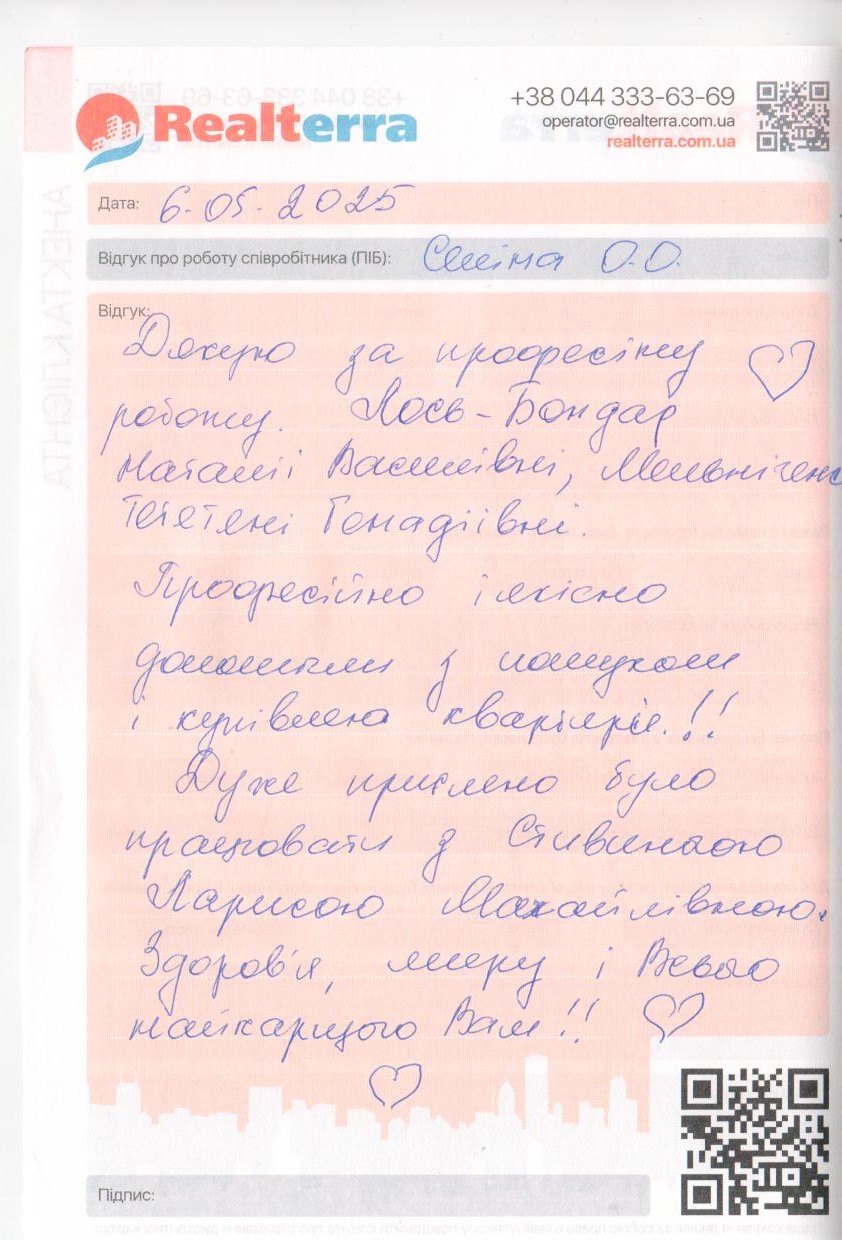 Realterra
+38 044 333-63-69
operator@realterra.com.ua
realterra.com.ua
АНКЕТА КЛІЄНТА
Дата: 6.05.2025
Відгук про роботу співробітника (ПІБ): О.О.
Відгук:
Дякую за професійну
роботу. Лось-Бондар
Наталії Василівні,
Тетяні Генадіївні.
Професійно і якісно
допомогли з пошуком
і купівлею квартири!!
Дуже приємно було
працювати з
Ларисою Михайлівною.
Здоров'я, миру і Всього
найкращого Вам!!
Підпис: